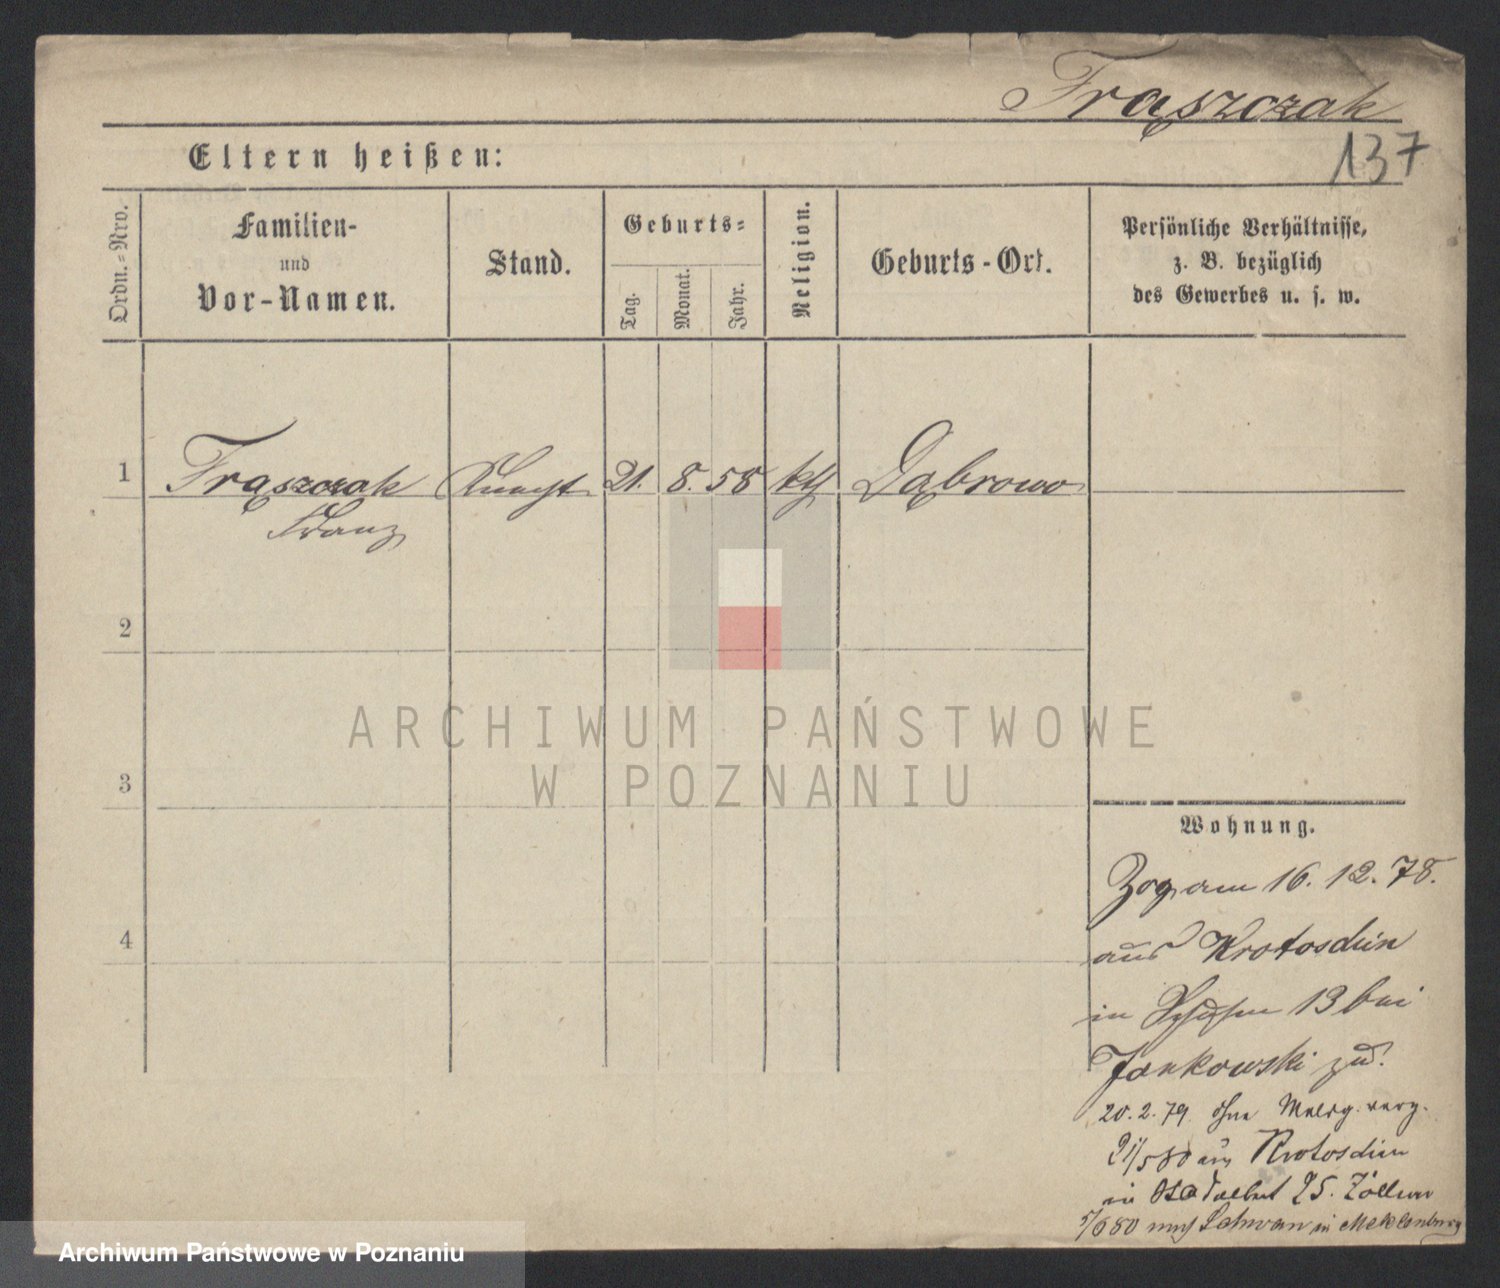 Frąszczak
137
Eltern heißen:
Ordn.-Nro.
Familien-
und
Vor-Namen.
Stand.
Geburts-
Tag.
Monat.
Jahr.
Religion.
Geburts-Ort.
Persönliche Verhältnisse,
z. B. bezüglich
des Gewerbes u. s. w.
1
Frąszczak Knecht 21. 8. 58 kth Dąbrowo
Franz
2
3
4
ARCHIWUM PAŃSTWOWE
W POZNANIU
Wohnung.
Zog am 16. 12. 78.
aus Krotoschin
in 13 bei
Jankowski zu.
20. 2. 79 ohne verz.
21/5 80 aus Krotoschin
in 25. Zöllner
5/6 80 nach in Meklenburg
Archiwum Państwowe w Poznaniu